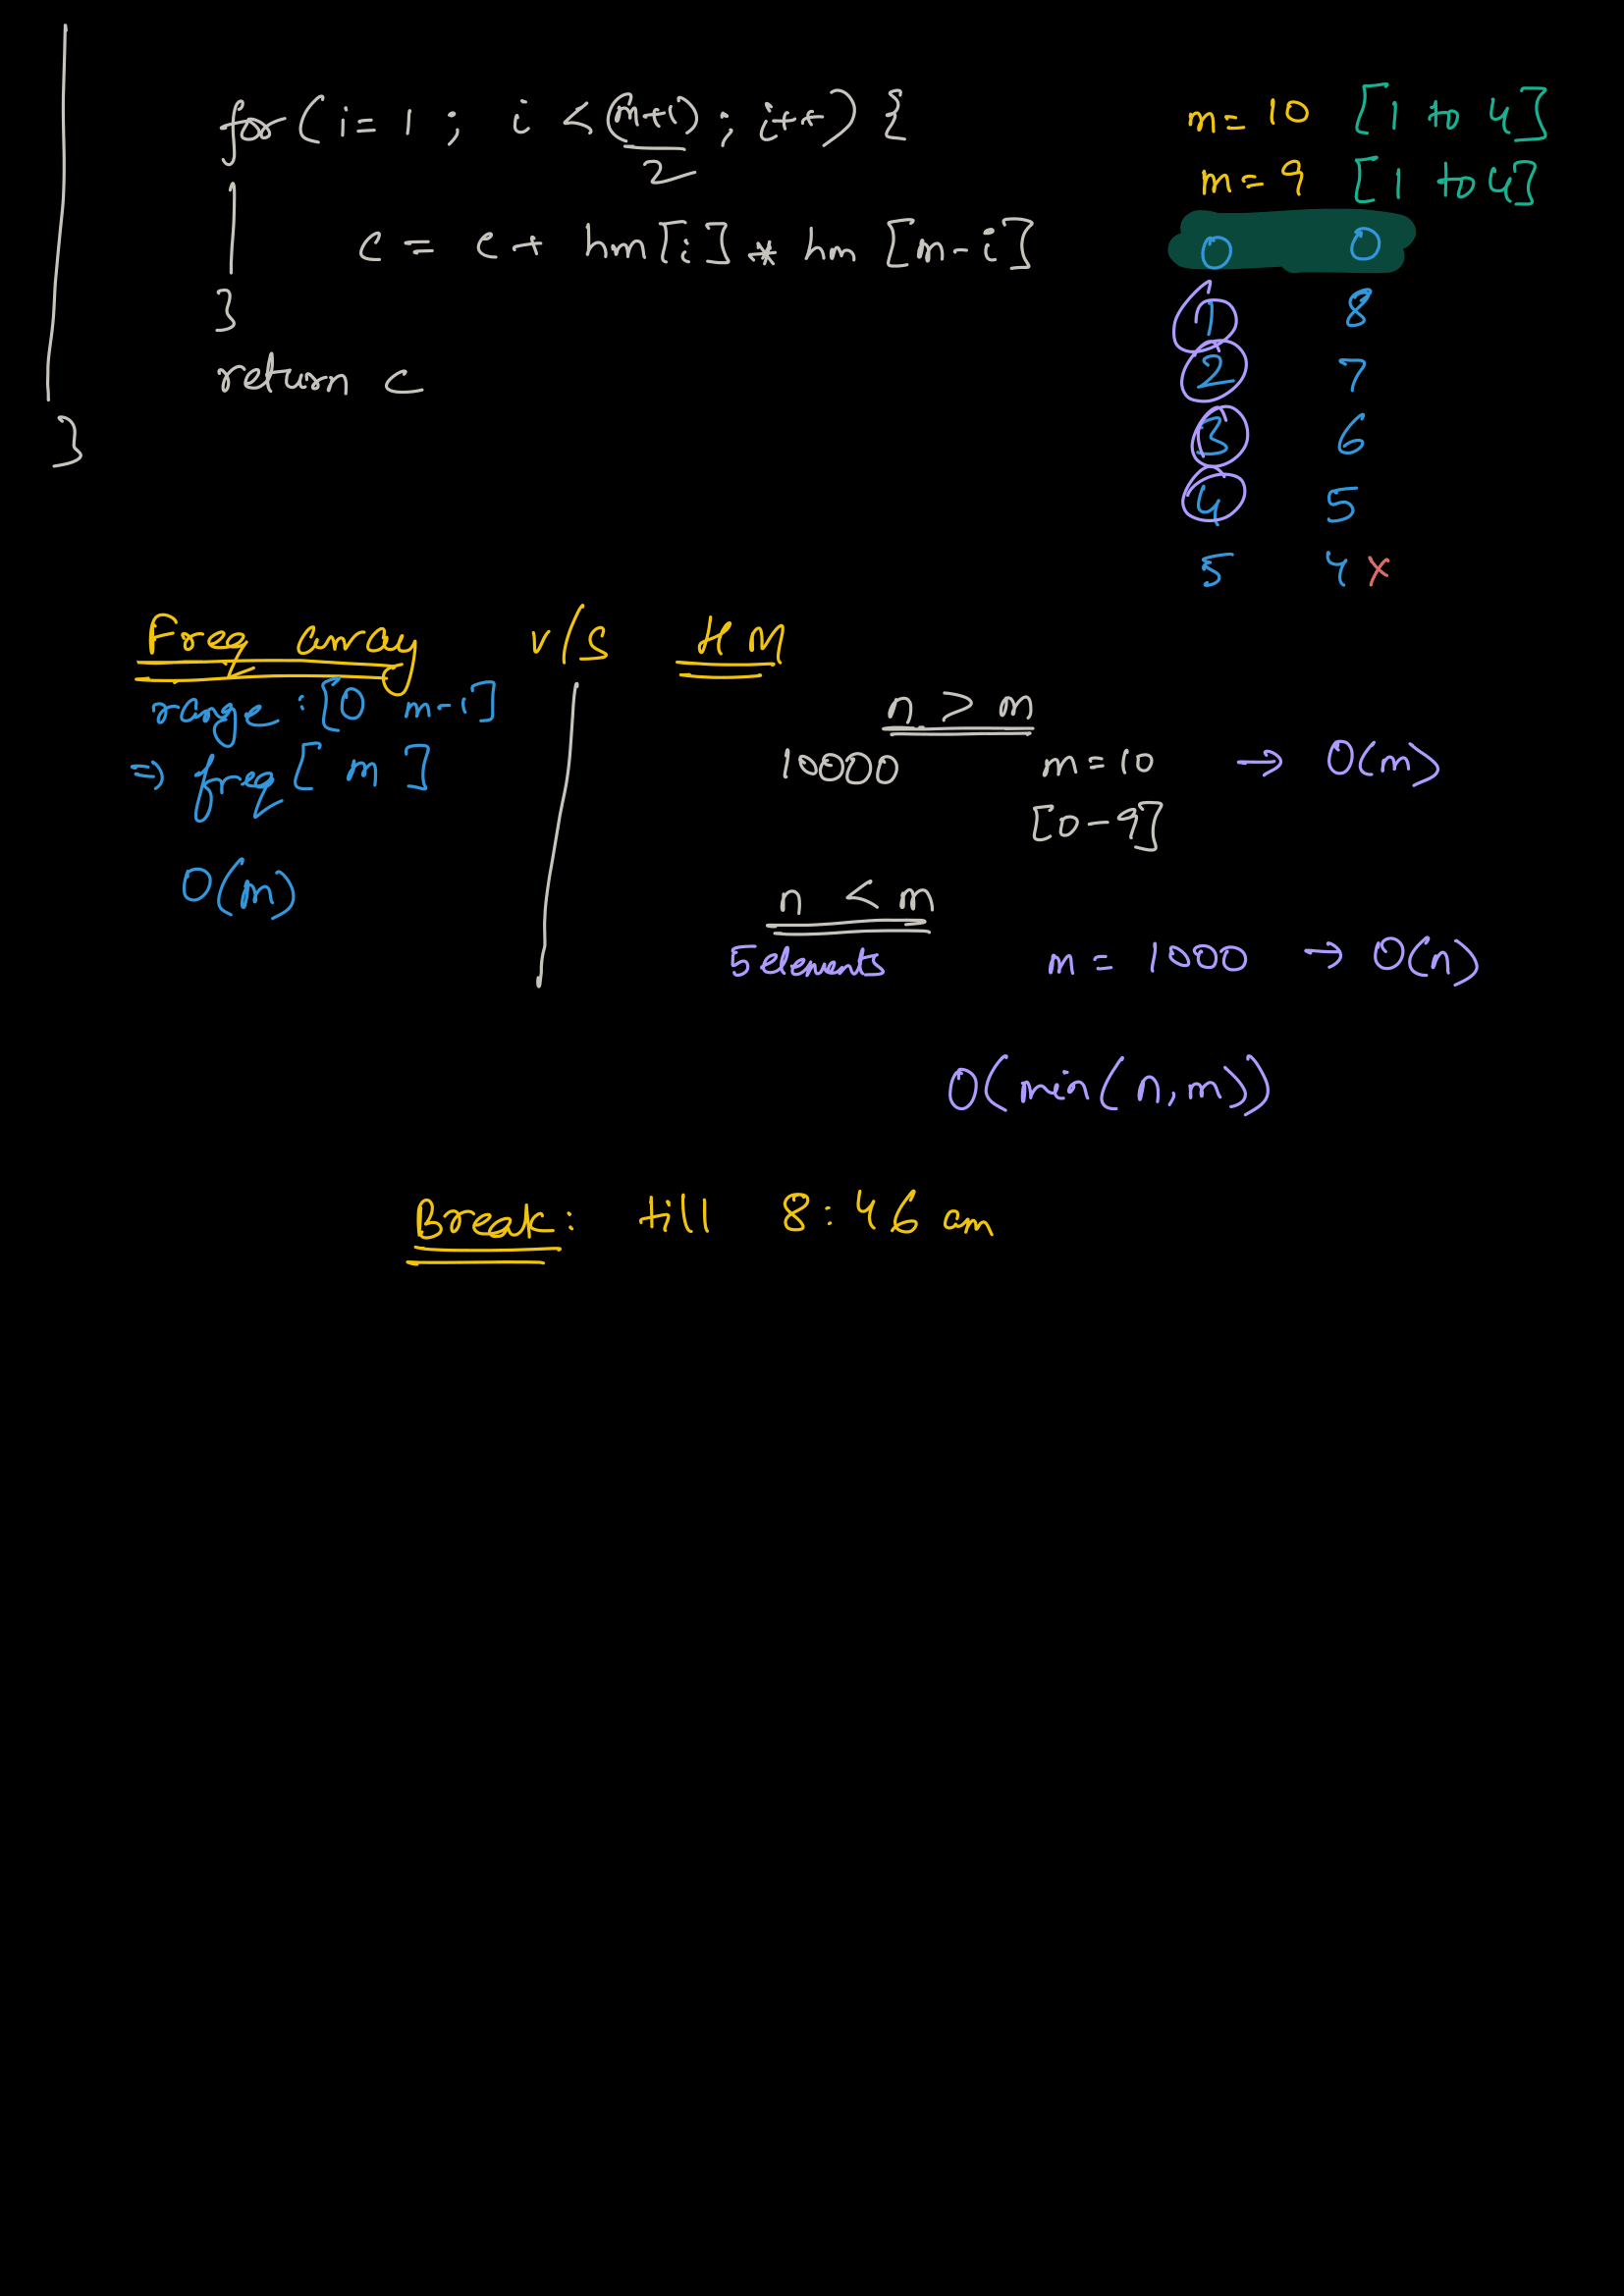 for ( i = 1 ; i < (m+1)/2 ; i++ ) {
c = c + hm[i] * hm [m-i]
}
return c
}
m = 10 [1 to 4]
m = 9 [1 to 4]
0 0
1 8
2 7
3 6
4 5
5 4 x
Freq array v/s HM
range : [0 m-1]
=> freq [ m ]
O(m)
n > m
10000 m = 10 → O(m)
[0-9]
n < m
5 elements m = 1000 → O(n)
O(min(n,m))
Break: till 8:46 am